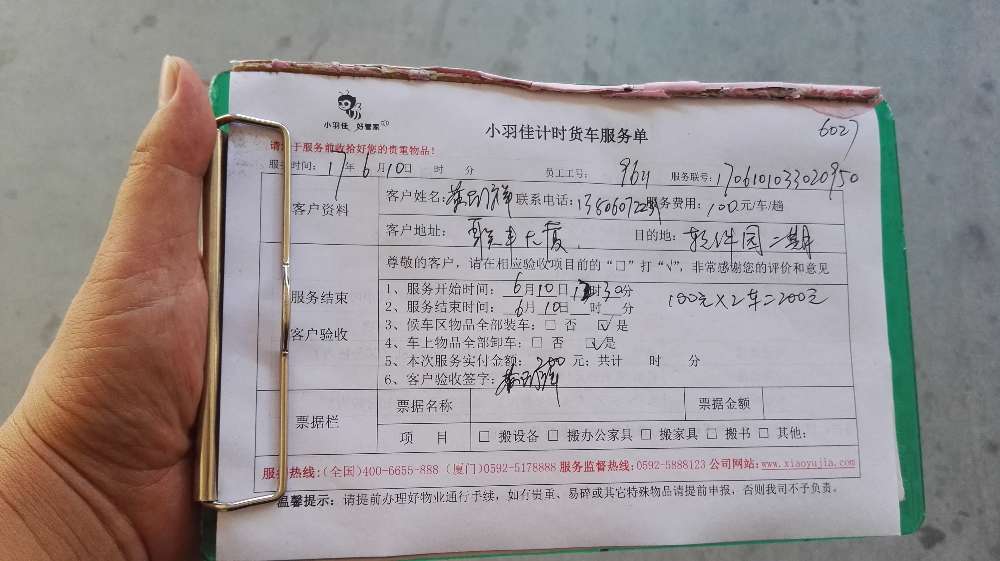 小羽佳 好管家
小羽佳计时货车服务单
6027
请您于服务前收拾好您的贵重物品!
服务时间: 17年6月10日 时 分 员工工号: 9611 服务联号: 1706101033020950
客户资料
客户姓名: 联系电话: 服务费用: 100元/车/趟
客户地址: 联丰大厦 目的地: 软件园二期
尊敬的客户，请在相应验收项目前的“□”打“√”，非常感谢您的评价和意见
服务结束
客户验收
1、服务开始时间: 6月10日 时30分
100元×2车=200元
2、服务结束时间: 6月10日 时 分
3、候车区物品全部装车: □ 否 ☑ 是
4、车上物品全部卸车: □ 否 ☑ 是
5、本次服务实付金额: 200元; 共计 时 分
6、客户验收签字:
票据栏
票据名称 票据金额
项 目 □ 搬设备 □ 搬办公家具 □ 搬家具 □ 搬书 □ 其他:
服务热线:(全国)400-6655-888 (厦门)0592-5178888 服务监督热线:0592-5888123 公司网站:www.xiaoyujia.com
温馨提示: 请提前办理好物业通行手续，如有贵重、易碎或其它特殊物品请提前申报，否则我司不予负责。